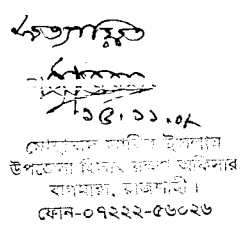 সত্যায়িত
১৫.১১.০৮
মোহাম্মদ ইসলাম
উপজেলা হিসাব রক্ষণ অফিসার
বাগমারা, রাজশাহী।
ফোন-০৭২২২-৫৬০২৬